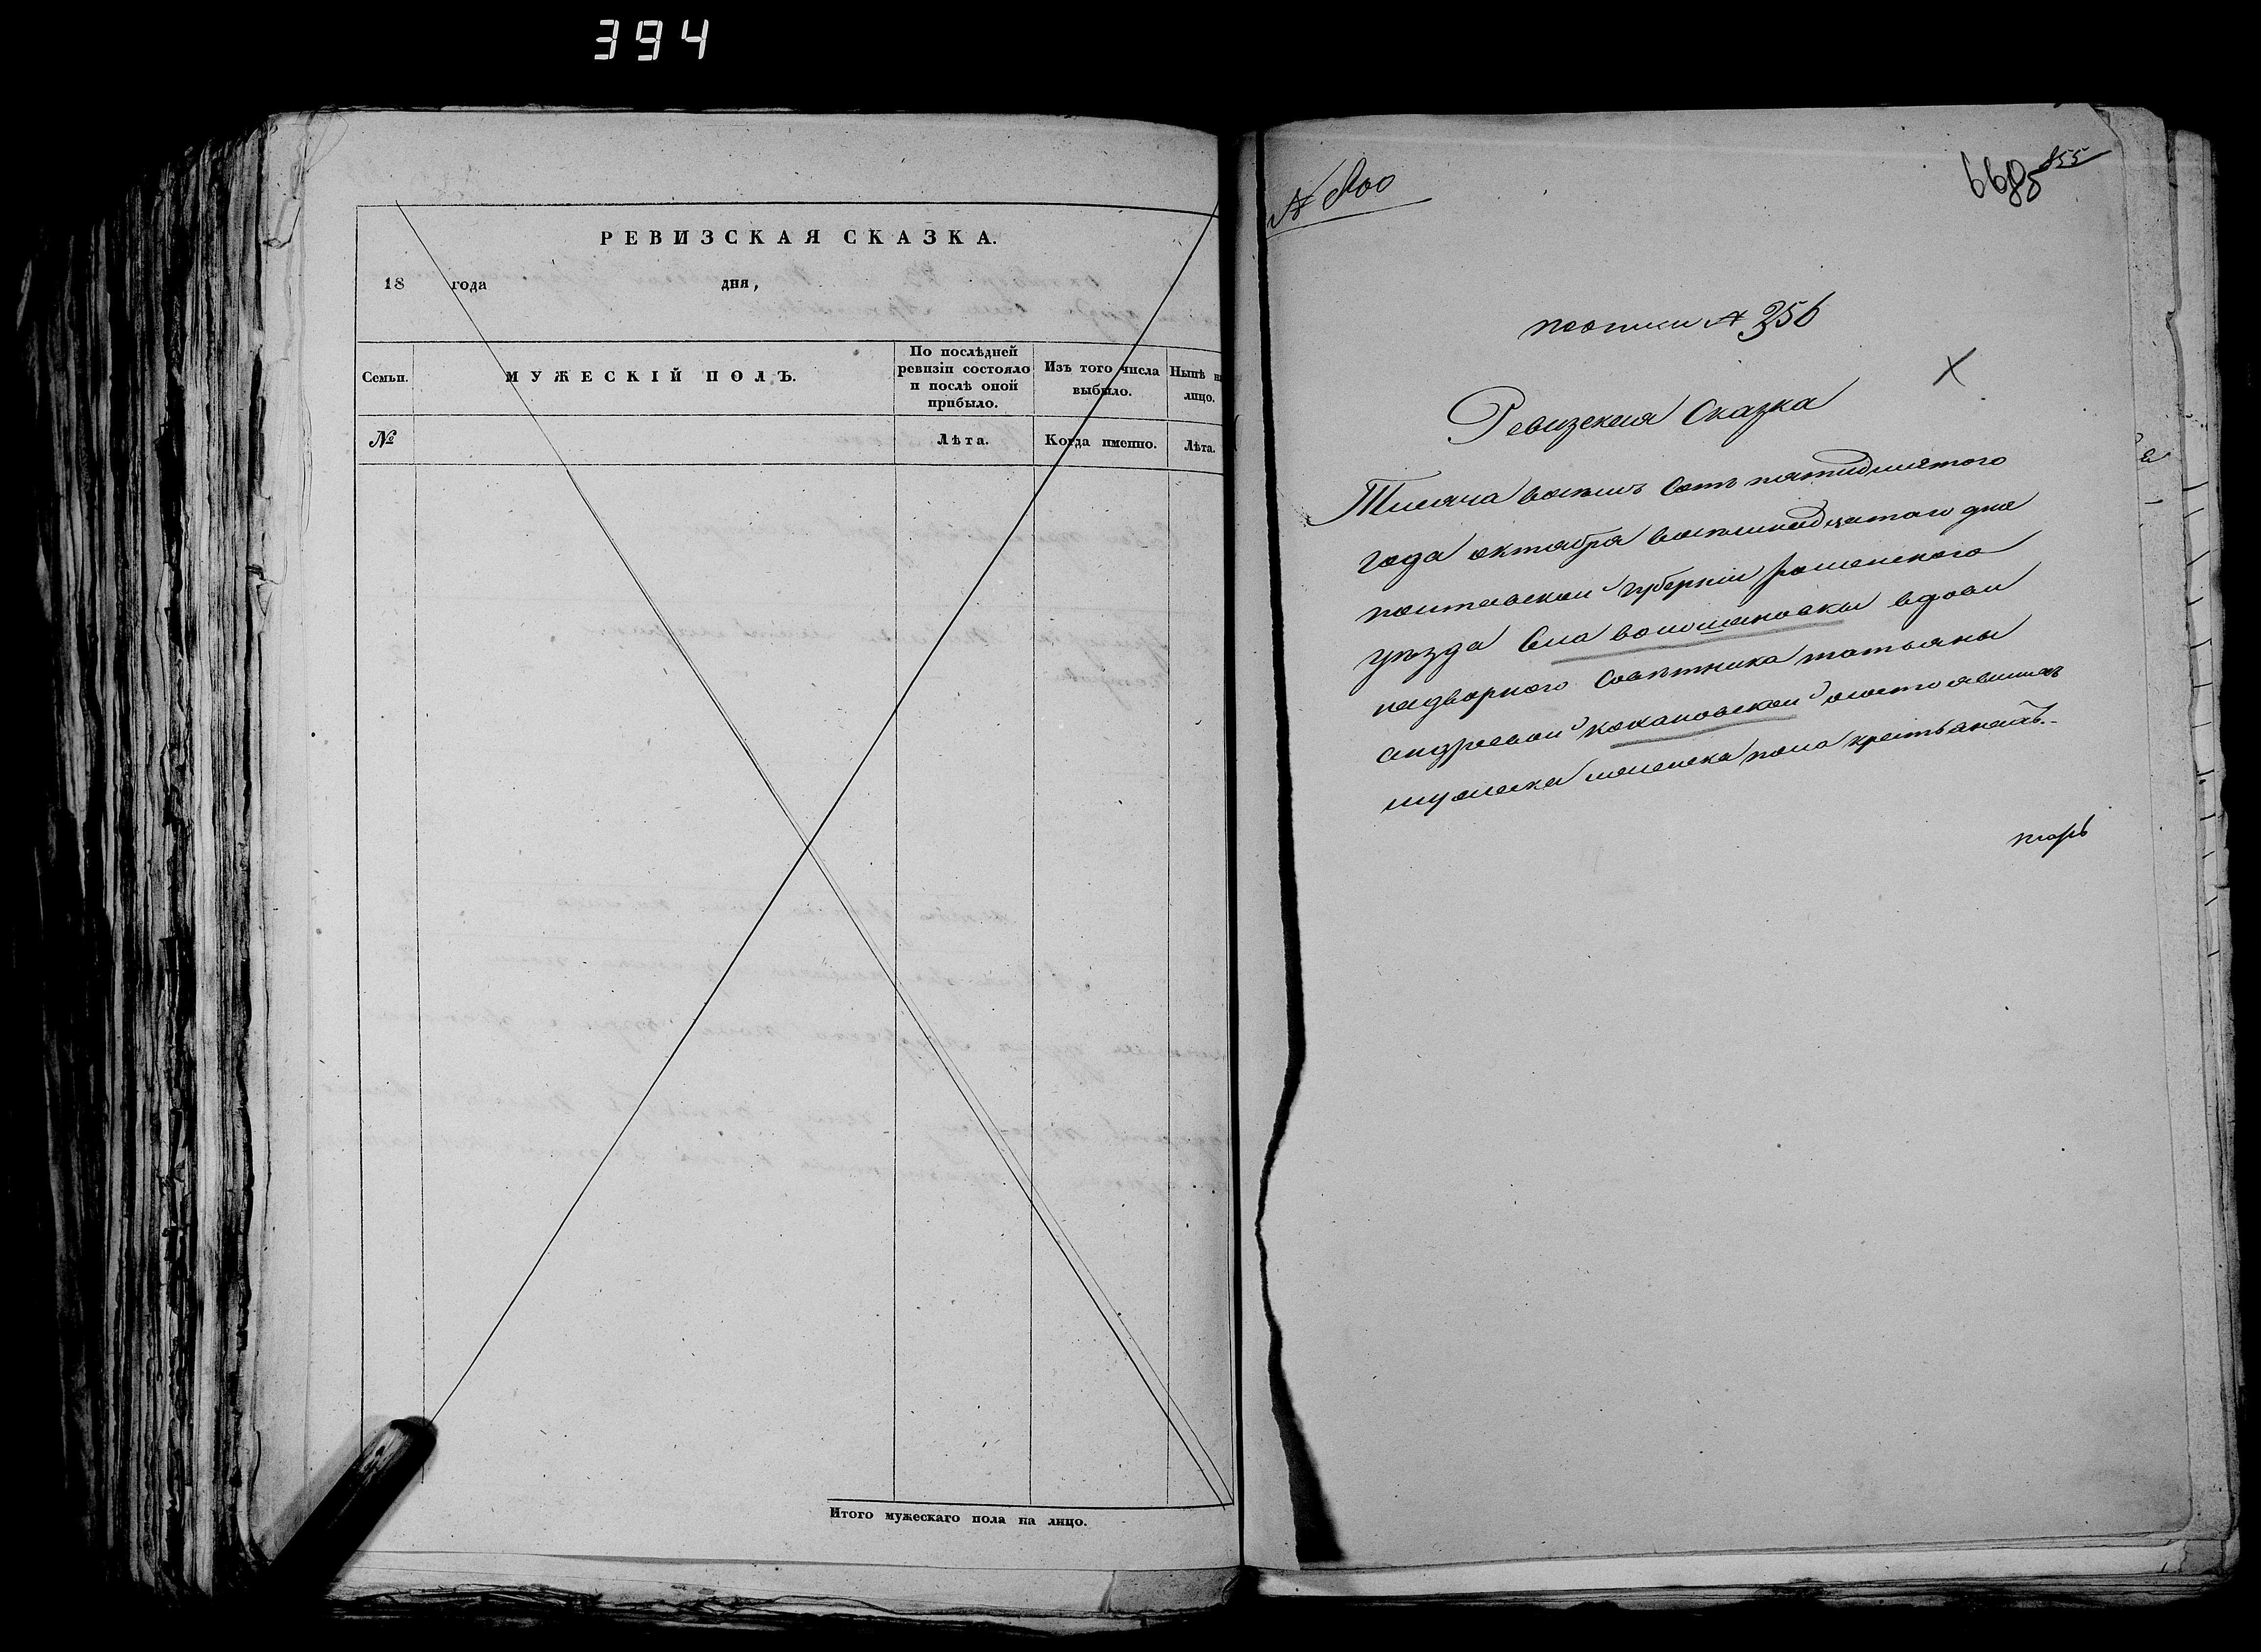 394
РЕВИЗСКАЯ СКАЗКА.
18 года дня,
Семьи.
МУЖЕСКІЙ ПОЛЪ.
По послѣдней ревизіи состояло и послѣ оной прибыло.
Изъ того числа выбыло.
Нынѣ на лицо.
№
Лѣта.
Когда именно.
Лѣта.
Итого мужескаго пола на лицо.
№ 800
855
6685
по описи № 356
Ревизская Сказка
Тысяча восемь сотъ пятидесятого
года октября восемнадцатаго дня
полтавской губерніи роменского
уѣзда села волошановки вдовы
надворного Совѣтника татьяны
андреевой кохановской о состоявшихъ
мужеска и женска пола крестьянахъ.